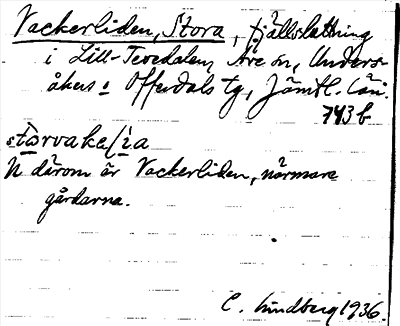 Vackerliden, Stora, fjällslättning
i Lill-Tevedalen, Åre sn, Unders-
åkers o Offerdals tg, Jämtl. län.
743 b
N därom är Vackerliden, närmare
gårdarna.
C. Lindberg 1936.